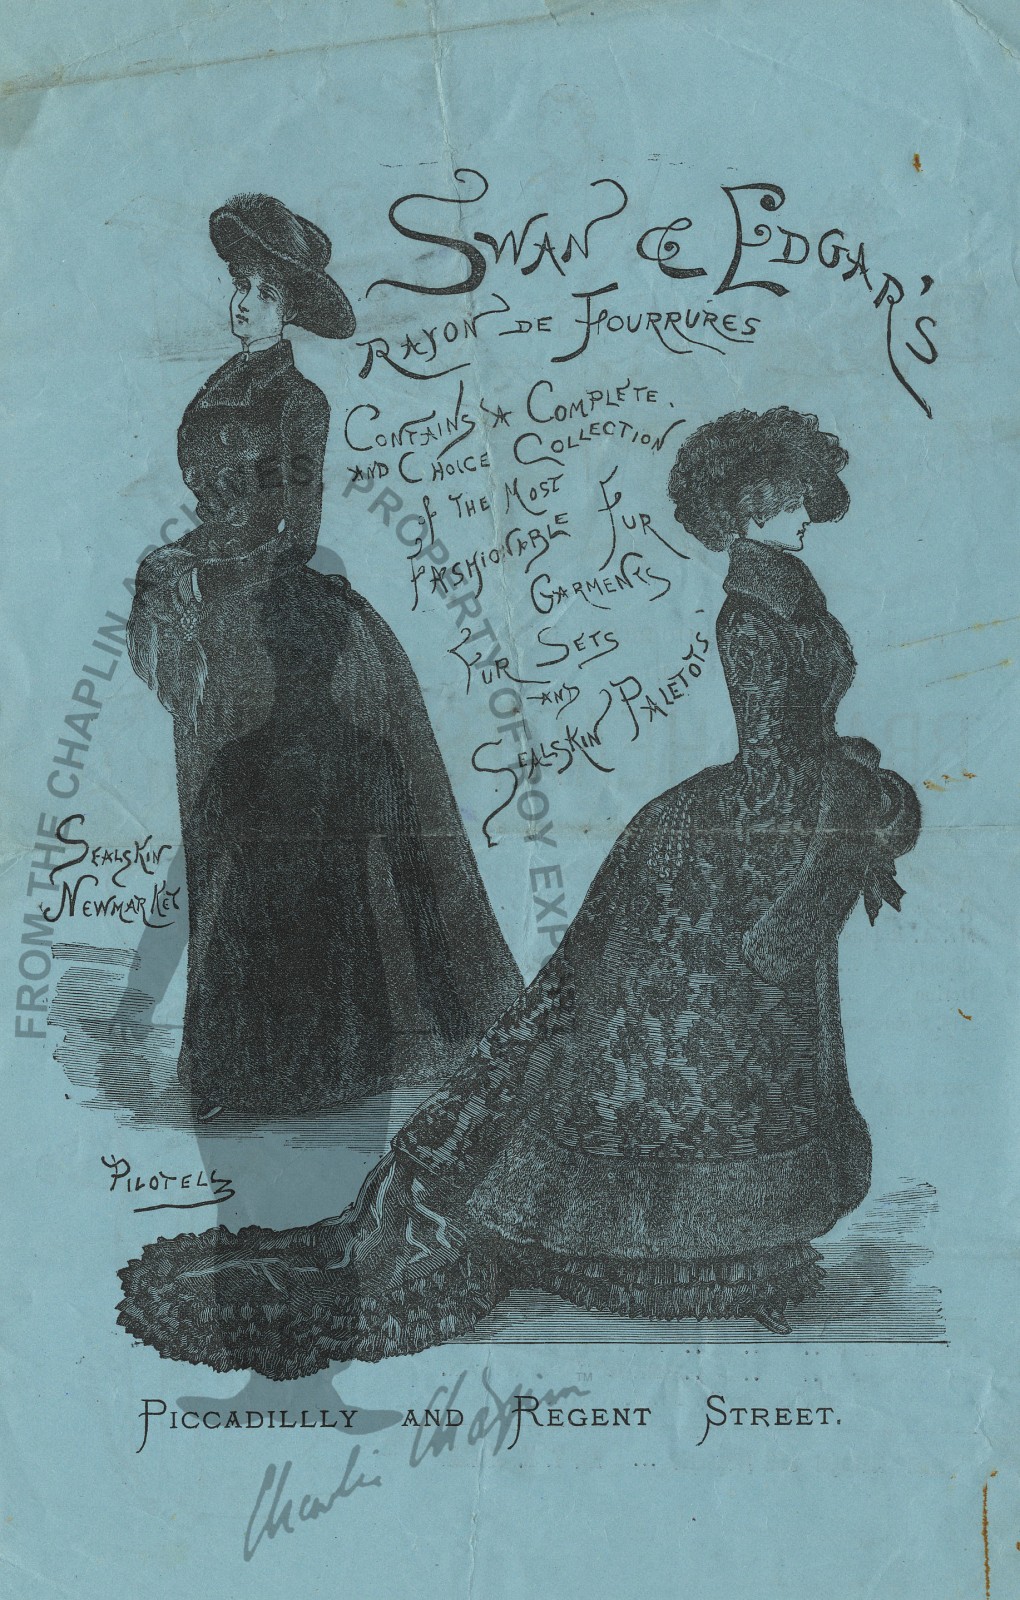 SWAN & EDGAR'S
RAYON DE FOURRURES
CONTAINS A COMPLETE.
AND CHOICE COLLECTION
of THE MOST
FASHIONABLE FUR
GARMENTS
FUR SETS
AND
SEALSKIN PALETOTS
SEALSKIN
NEWMARKET
PILOTELL
PICCADILLLY AND REGENT STREET.
FROM THE CHAPLIN ARCHIVES, PROPERTY OF ROY EXPORT
Charlie Chaplin
TM